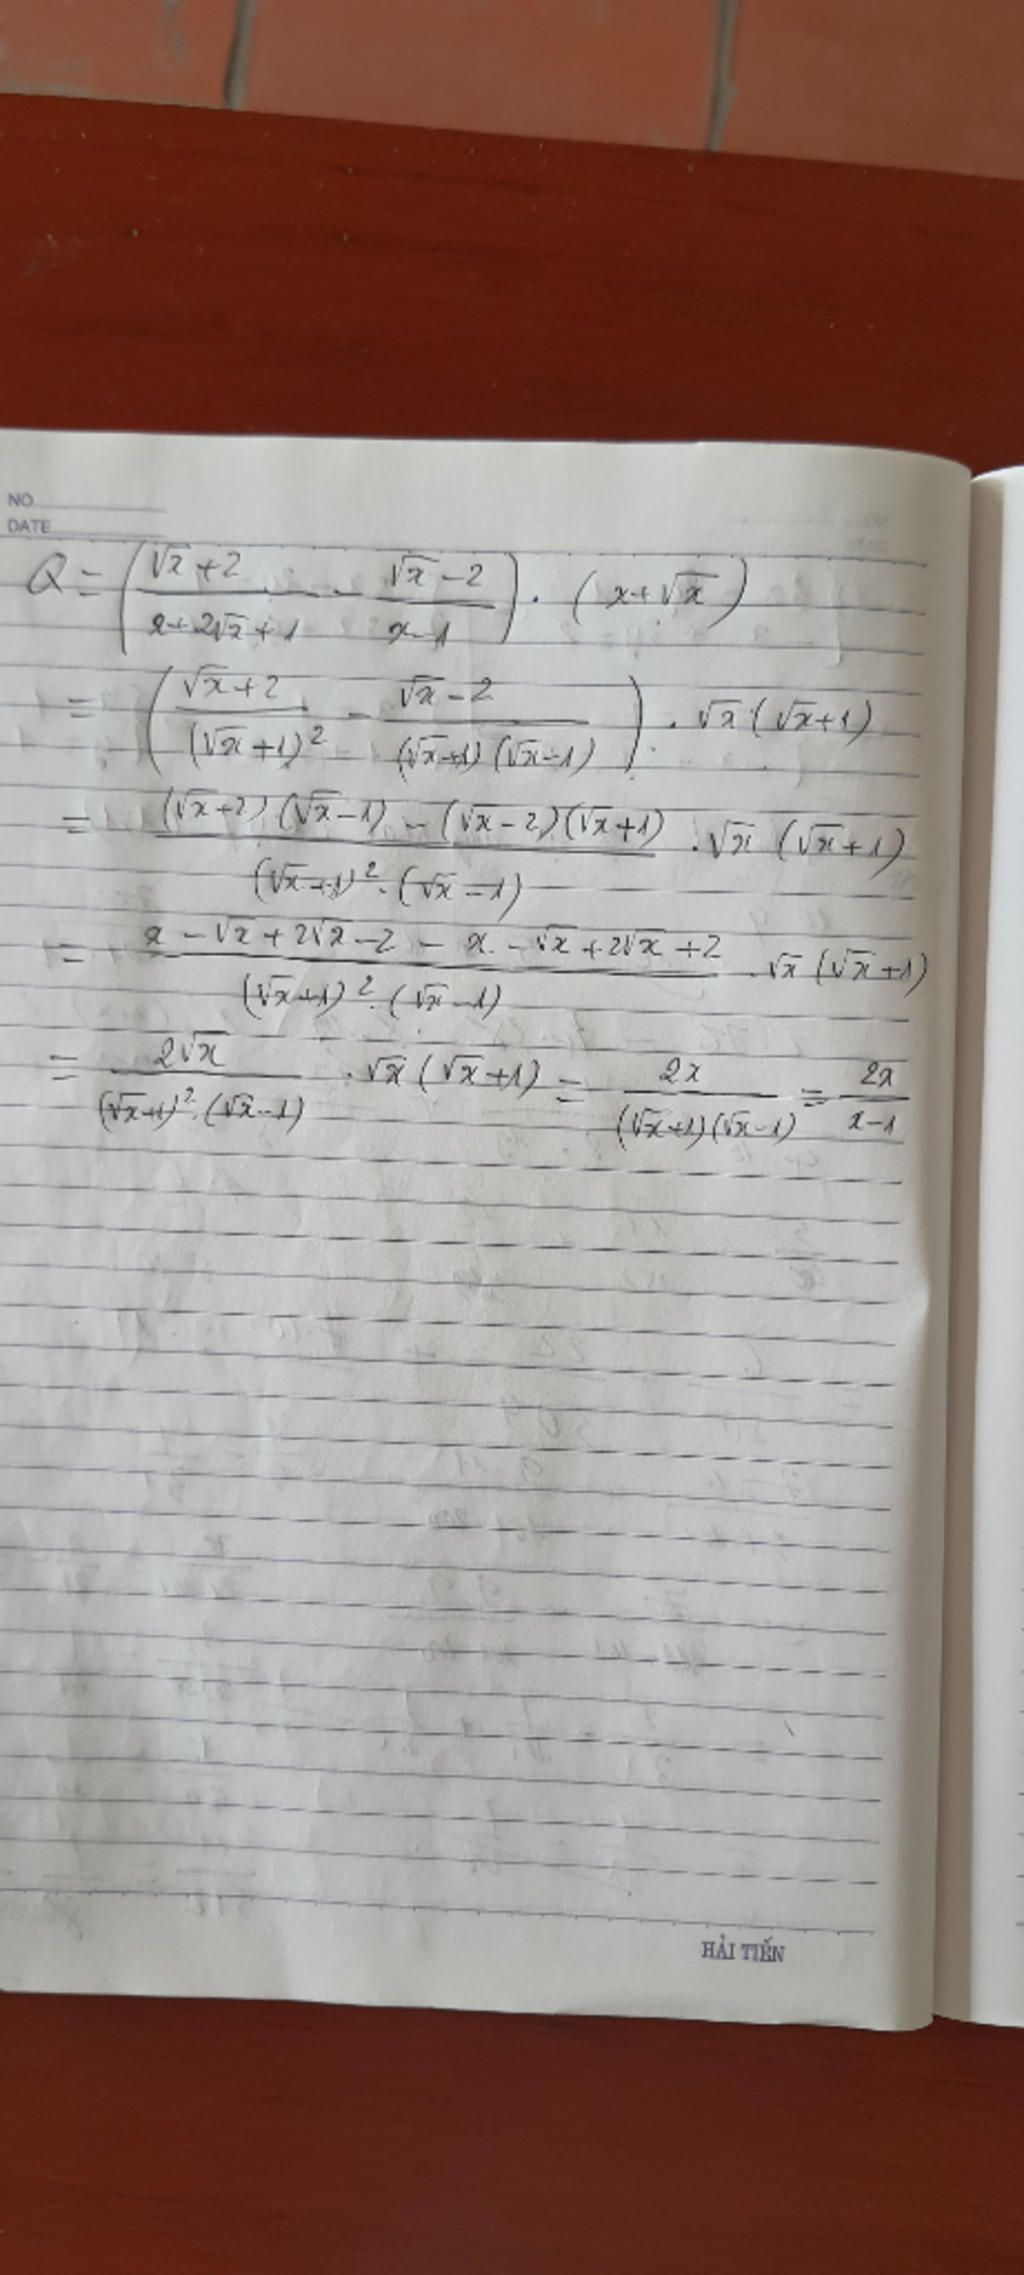 NO
DATE
Q = ( (√x + 2)/(x + 2√x + 1) - (√x - 2)/(x - 1) ) . (x + √x)
= ( (√x + 2)/(√x + 1)² - (√x - 2)/((√x + 1)(√x - 1)) ) . √x (√x + 1)
= ((√x + 2)(√x - 1) - (√x - 2)(√x + 1))/((√x + 1)² . (√x - 1)) . √x (√x + 1)
= (x - √x + 2√x - 2 - x - √x + 2√x + 2)/((√x + 1)² . (√x - 1)) . √x (√x + 1)
= 2√x/((√x + 1)² . (√x - 1)) . √x (√x + 1) = 2x/((√x + 1)(√x - 1)) = 2x/(x - 1)
HẢI TIẾN